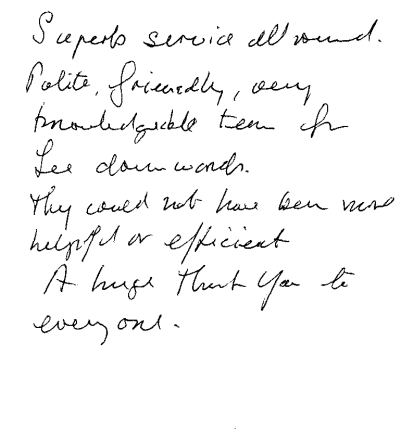 Superb service all round.
Polite, friendly, very
knowledgeable team fr
Lee downwards.
They could not have been more
helpful or efficient
A huge Thank You to
everyone.